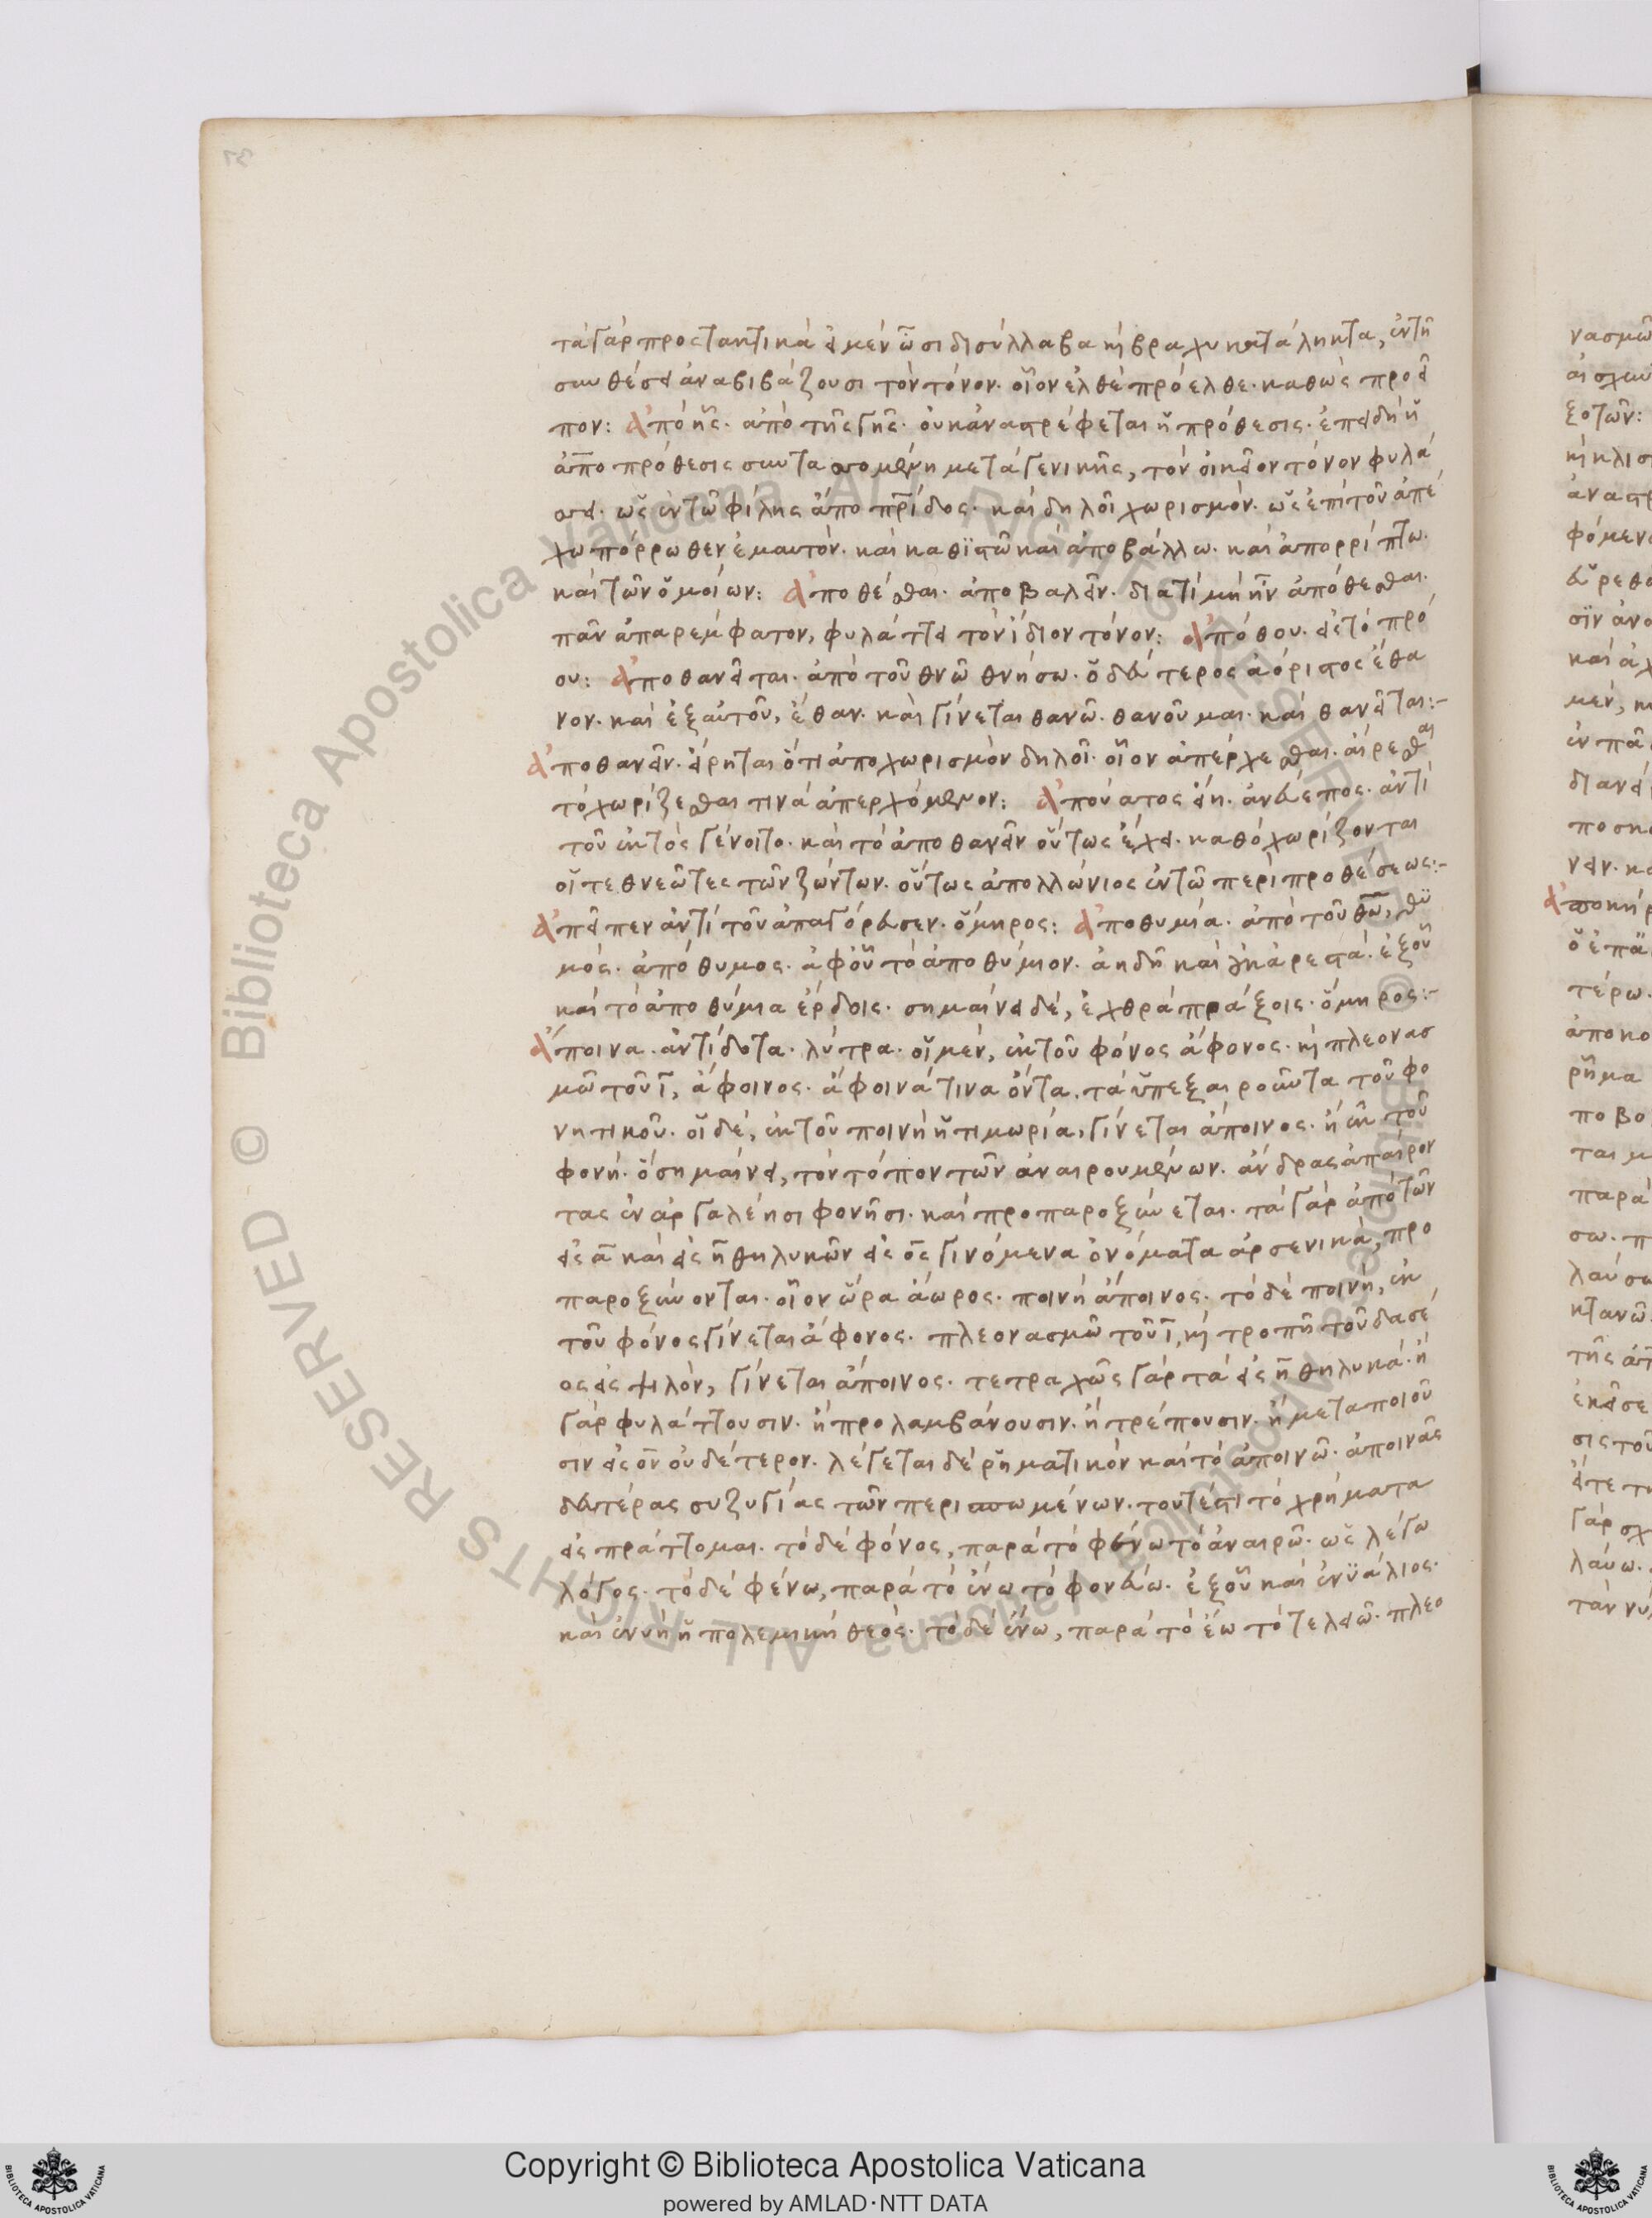 τὰ γὰρ προστακτικὰ εἰ μὲν ὦσι δισύλλαβα καὶ βραχυκατάληκτα, ἐν τῆ
συνθέσει ἀναβιβάζουσι τὸν τόνον· οἷον ἐλθέ πρόελθε· καθὼς προεῖ
πον: Ἀπὸ ἧς· ἀπὸ τῆς γῆς· οὐκ ἀναστρέφεται ἡ πρόθεσις· ἐπειδὴ ἡ
ἀπο πρόθεσις συντασσομένη μετὰ γενικῆς, τὸν οἰκεῖον τόνον φυλά
σσει· ὡς ἐν τῶ φίλης ἄπο πρίδος· καὶ δηλοῖ χωρισμόν· ὡς ἐπὶ τοῦ ἀπέ
χω πόρρωθεν ἐμαυτόν· καὶ καθϊστῶ καὶ ἀποβάλλω· καὶ ἀπορρίπτω·
καὶ τῶν ὁμοίων: Ἀποθέσθαι· ἀποβαλεῖν· διατί μὴ ἦν ἀπόθεσθαι·
πᾶν ἀπαρέμφατον, φυλάττει τὸν ἴδιον τόνον: Ἀπόθου· εἰς τὸ πρό
ου: Ἀποθανεῖται· ἀπὸ τοῦ θνῶ θνήσω· ὁ δεύτερος ἀόριστος ἔθα
νον· καὶ ἐξ αὐτοῦ, ἔθαν· καὶ γίνεται θανῶ· θανοῦμαι· καὶ θανεῖται:–
Ἀποθανεῖν· εἴρηται ὅτι ἀποχωρισμὸν δηλοῖ· οἷον ἀπέρχεσθαι· αἴρεσθαι
τὸ χωρίζεσθαι τινὰ ἀπερχόμενον: Ἀπούατος εἴη· ἄνευ ἔπος· ἀντὶ
τοῦ ἐκτὸς γένοιτο· καὶ τὸ ἀποθανεῖν οὕτως ἔχει· καθὸ χωρίζονται
οἱ τεθνεῶτες τῶν ζώντων· οὕτως ἀπολλώνιος ἐν τῶ περὶ προθέσεως:–
Ἀπεῖπεν ἀντὶ τοῦ ἀπαγόρευσεν· ὅμηρος: Ἀποθυμία· ἀπὸ τοῦ θῶ, θϋ
μός· ἀπόθυμος· ἀφ' οὗ τὸ ἀποθύμιον· ἀηδῆ καὶ οὐκ ἀρεστά· ἐξ οὗ
καὶ τὸ ἀποθύμια ἔρδοις· σημαίνει δέ, ἐχθρὰ πράξοις· ὅμηρος:–
Ἄποινα· ἀντίδοτα· λύτρα· οἱ μέν, ἐκ τοῦ φόνος ἄφονος· καὶ πλεονασ
μῶ τοῦ ι, ἄφοινος· ἄφοινά τινα ὄντα, τὰ ὑπεξαιροῦντα τοῦ φο
νητικοῦ· οἱ δέ, ἐκ τοῦ ποινή ἡ τιμωρία, γίνεται ἄποινος· ἢ ἐκ τοῦ
φονή· ὃ σημαίνει, τὸν τόπον τῶν ἀναιρουμένων· ἄνδρας ἀπαίρον
τας ἐν ἀργαλέησι φονῆσι· καὶ προπαροξύνεται· τὰ γὰρ ἀπὸ τῶν
εἰς α καὶ εἰς η θηλυκῶν εἰς ος γινόμενα ὀνόματα ἀρσενικὰ, προ
παροξύνονται· οἷον ὥρα ἄωρος· ποινή ἄποινος· τὸ δὲ ποινή, ἐκ
τοῦ φόνος γίνεται ἄφονος· πλεονασμῶ τοῦ ι, καὶ τροπῆ τοῦ δασέ
ος εἰς ψιλόν, γίνεται ἄποινος· τετραχῶς γὰρ τὰ εἰς η θηλυκά· ἢ
γὰρ φυλάττουσιν· ἢ προλαμβάνουσιν· ἢ τρέπουσιν· ἢ μεταποιοῦ
σιν εἰς ον οὐδέτερον· λέγεται δὲ ῥηματικὸν καὶ τὸ ἀποινῶ· ἀποινᾶς
δευτέρας συζυγίας τῶν περισπωμένων· τουτέστι τὸ χρήματα
εἰς πράττομαι· τὸ δὲ φόνος, παρὰ τὸ φένω τὸ ἀναιρῶ· ὡς λέγω
λόγος· τὸ δὲ φένω, παρὰ τὸ ἕνω τὸ φονεύω· ἐξ οὗ καὶ ἐνϋάλιος·
καὶ ἐνυὴ ἡ πολεμικὴ θεός· τὸ δὲ ἕνω, παρὰ τὸ ἕω τὸ τελειῶ· πλεο
Copyright © Biblioteca Apostolica Vaticana
powered by AMLAD·NTT DATA